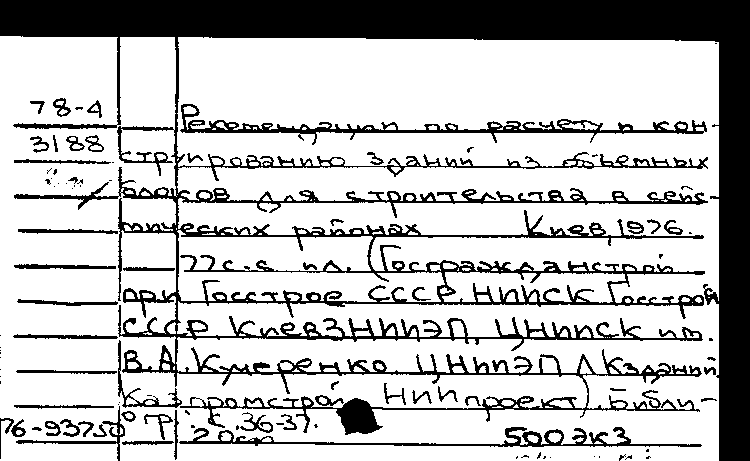 78-4 Рекомендации по расчету и кон-
3188 струированию зданий из объемных
блоков для строительства в сейс-
мических районах Киев, 1976.
77с.с ил. (Госгражданстрой
при Госстрое СССР. НИИСК Госстроя
СССР. КиевЗНИИЭП, ЦНИИСК им.
В.А.Кучеренко. ЦНИИЭП ЛКзданий
Казпромстрой НИИпроект). Библи-
76-93750 огр.: с.36-37.
500 экз